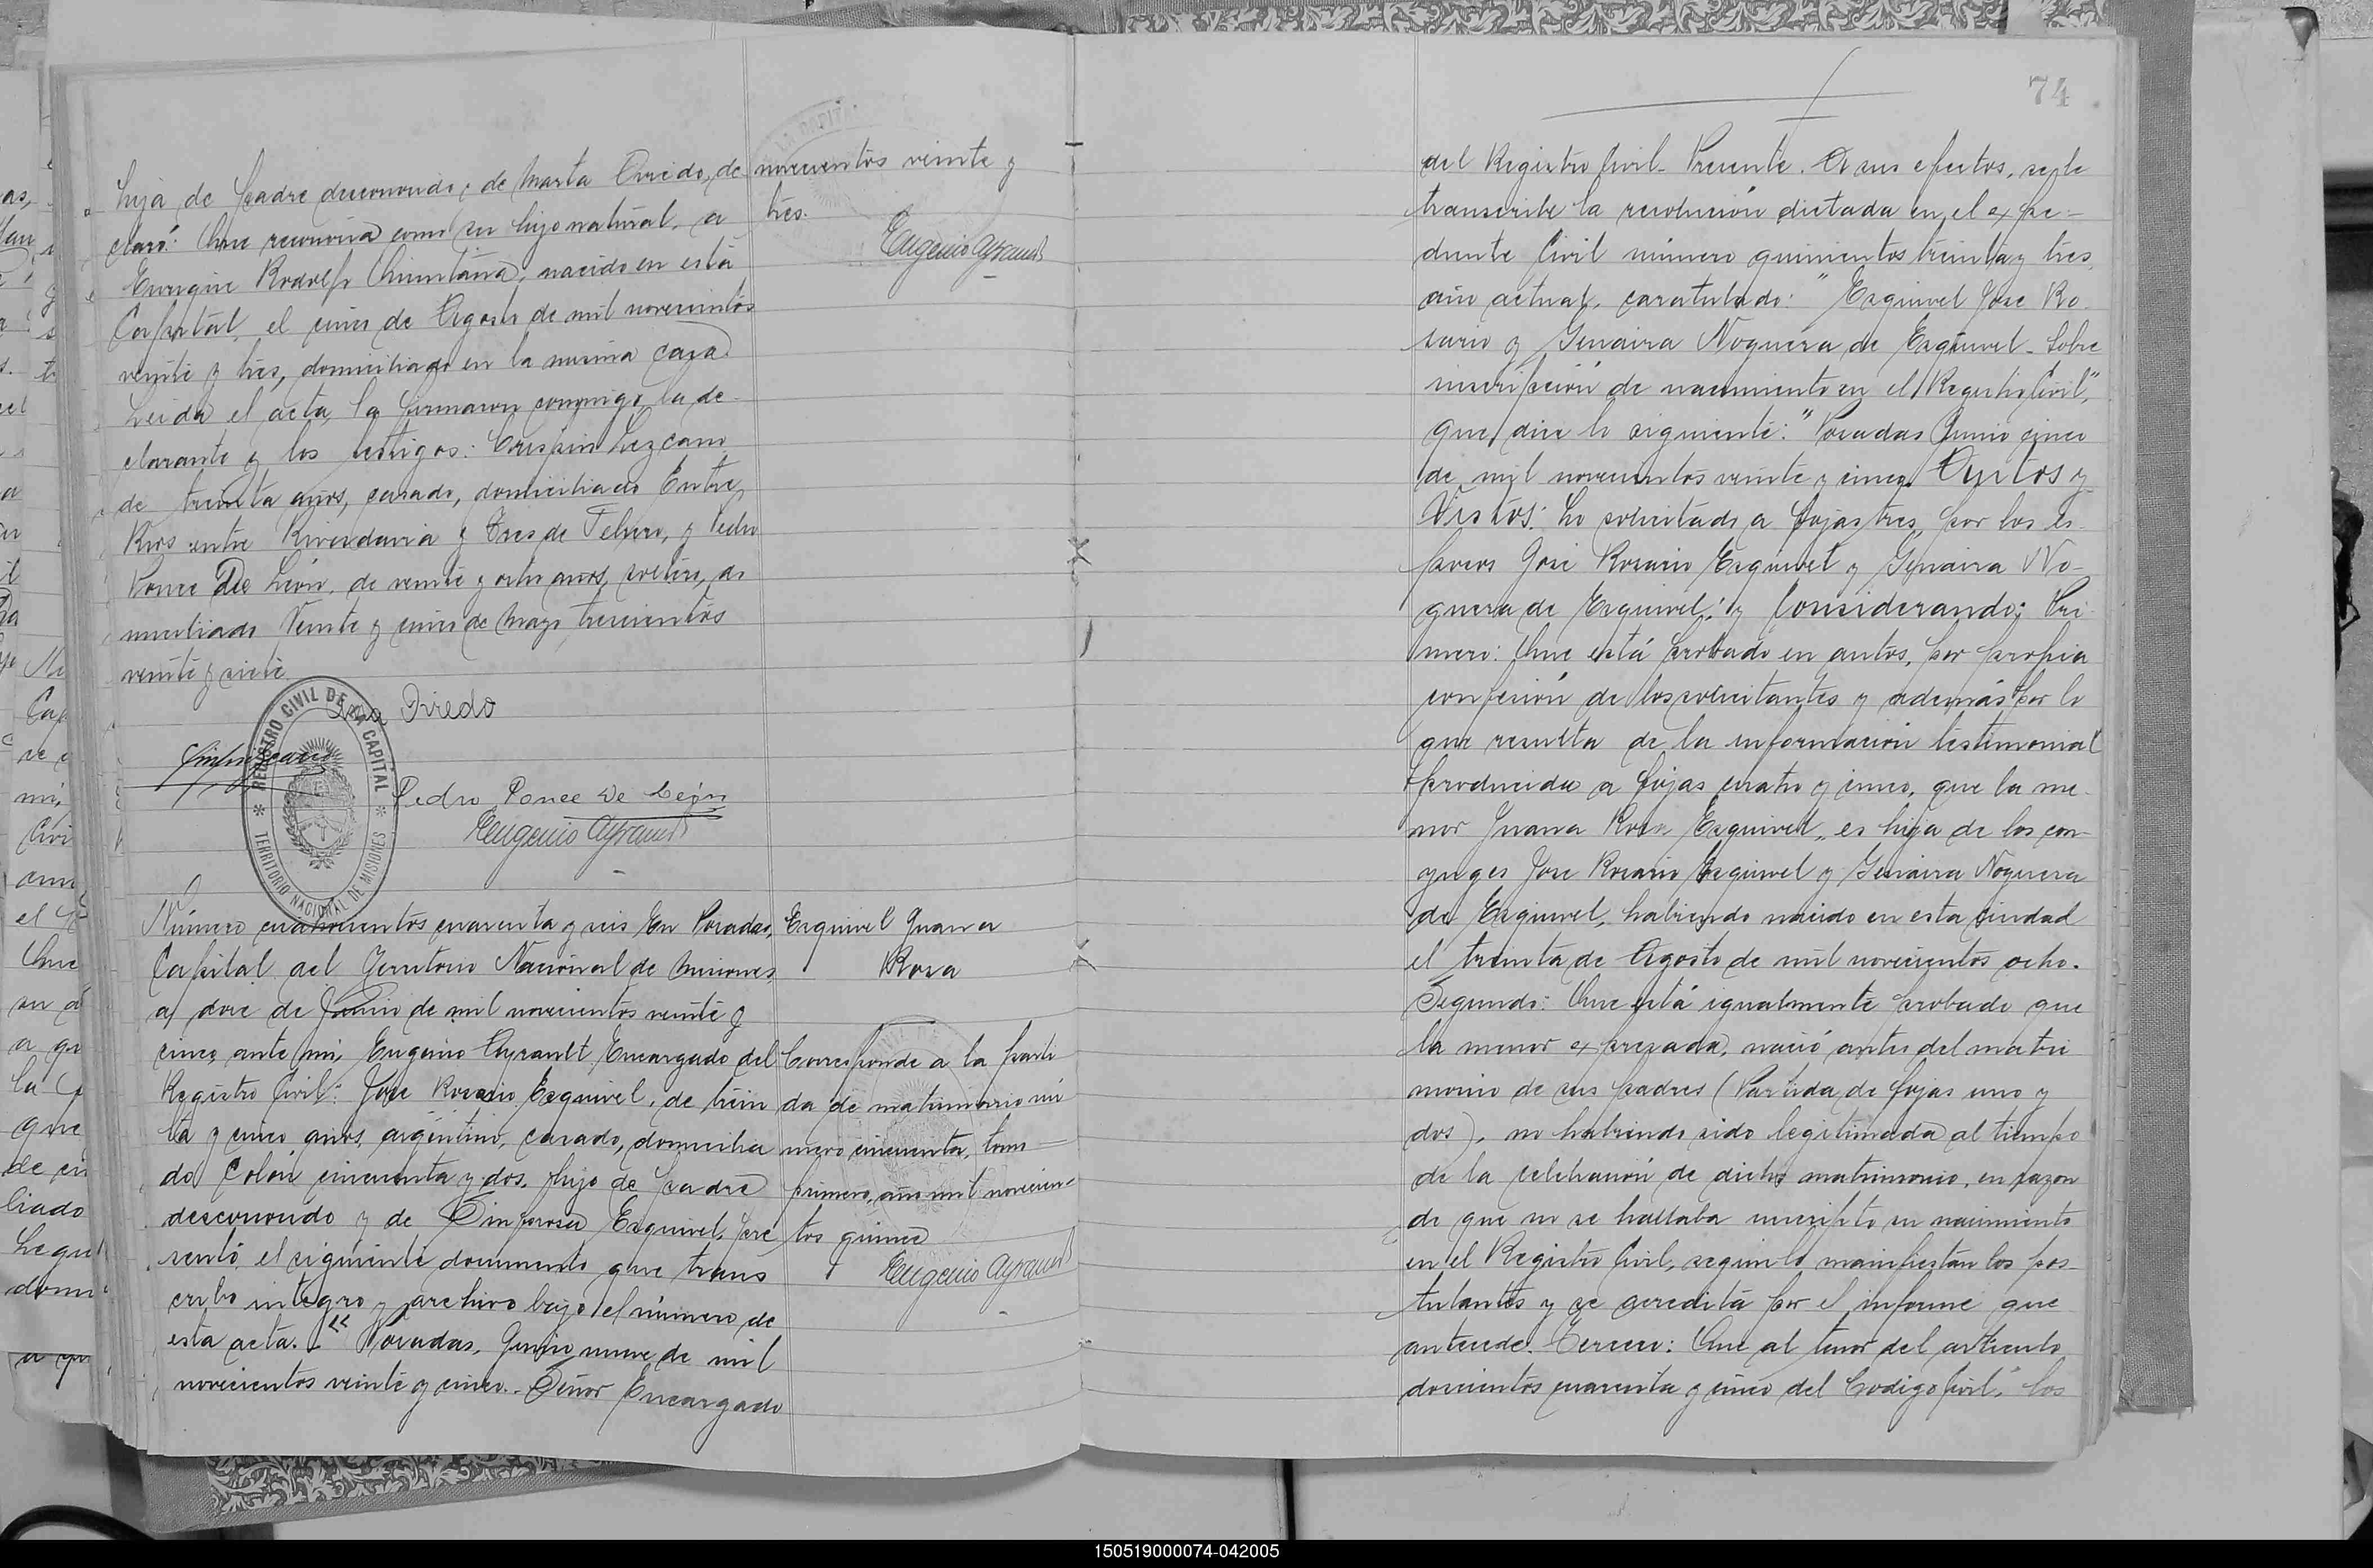 hija de padre desconocido y de Marta Oviedo, de
claró: Que reconocía como su hijo natural, a
Enrique Rodolfo Quintana, nacido en esta
Capital, el cinco de Agosto de mil novecientos
veinte y tres, domiciliado en la misma casa
Leida el acta, la firmaron conmigo, la de-
clarante y los testigos: Crispin Lezcano
de treinta años, casado, domiciliado Entre
Rios entre Rivadavia y Tres de Febrero, y Pedro
Ponce De León, de veinte y ocho años, soltero, do
miciliado Veinte y cinco de Mayo trescientos
veinte y siete
novecientos veinte y
tres.
Eugenio Ayrault
Oviedo
REGISTRO CIVIL DE LA CAPITAL
TERRITORIO NACIONAL DE MISIONES
Pedro Ponce De León
Eugenio Ayrault
Número cuatrocientos cuarenta y seis En Posadas,
Capital del Territorio Nacional de Misiones,
a doce de Junio de mil novecientos veinte y
cinco, ante mi, Eugenio Ayrault, Encargado del
Registro Civil: Jose Rosario Esquivel, de trein
ta y cinco años, argentino, casado, domicilia
do Colón cincuenta y dos, hijo de padre
desconocido y de Sinforosa Esquivel, pre
sentó el siguiente documento que trans
cribo integro y archivo bajo el número de
esta acta. "Posadas, Junio nueve de mil
novecientos veinte y cinco.- Señor Encargado
Esquivel Juana
Rosa
Corresponde a la parti
da de matrimonio nú
mero cincuenta, tomo
primero, año mil novecien-
tos quince
Eugenio Ayrault
74
del Registro Civil- Presente. A sus efectos, se le
transcribe la resolución dictada en el expe-
diente Civil número quinientos treinta y tres,
año actual, caratulado: "Esquivel Jose Ro-
sario y Genaira Noguera de Esquivel- Sobre
inscripción de nacimiento en el Registro Civil",
que dice lo siguiente: "Posadas Junio cinco
de mil novecientos veinte y cinco. Autos y
Vistos: Lo solicitado a fojas tres, por los es-
posos José Rosario Esquivel y Genaira No-
guera de Esquivel; y Considerando: Pri-
mero: Que está probado en autos, por propia
confesión de los solicitantes y además por lo
que resulta de la información testimonial
producida a fojas cuatro y cinco, que la me-
nor Juana Rosa Esquivel, es hija de los con-
yuges Jose Rosario Esquivel y Genaira Noguera
de Esquivel, habiendo nacido en esta ciudad
el treinta de Agosto de mil novecientos ocho.
Segundo: Que está igualmente probado que
la menor expresada, nació antes del matri
monio de sus padres (Partida de fojas uno y
dos), no habiendo sido legitimada al tiempo
de la celebración de dicho matrimonio, en razon
de que no se hallaba inscripto su nacimiento
en el Registro Civil, según lo manifiestan los pos-
tulantes y se acredita por el informe que
antecede. Tercero: Que al tenor del artículo
doscientos cuarenta y cinco del Codigo Civil, "los
150519000074-042005